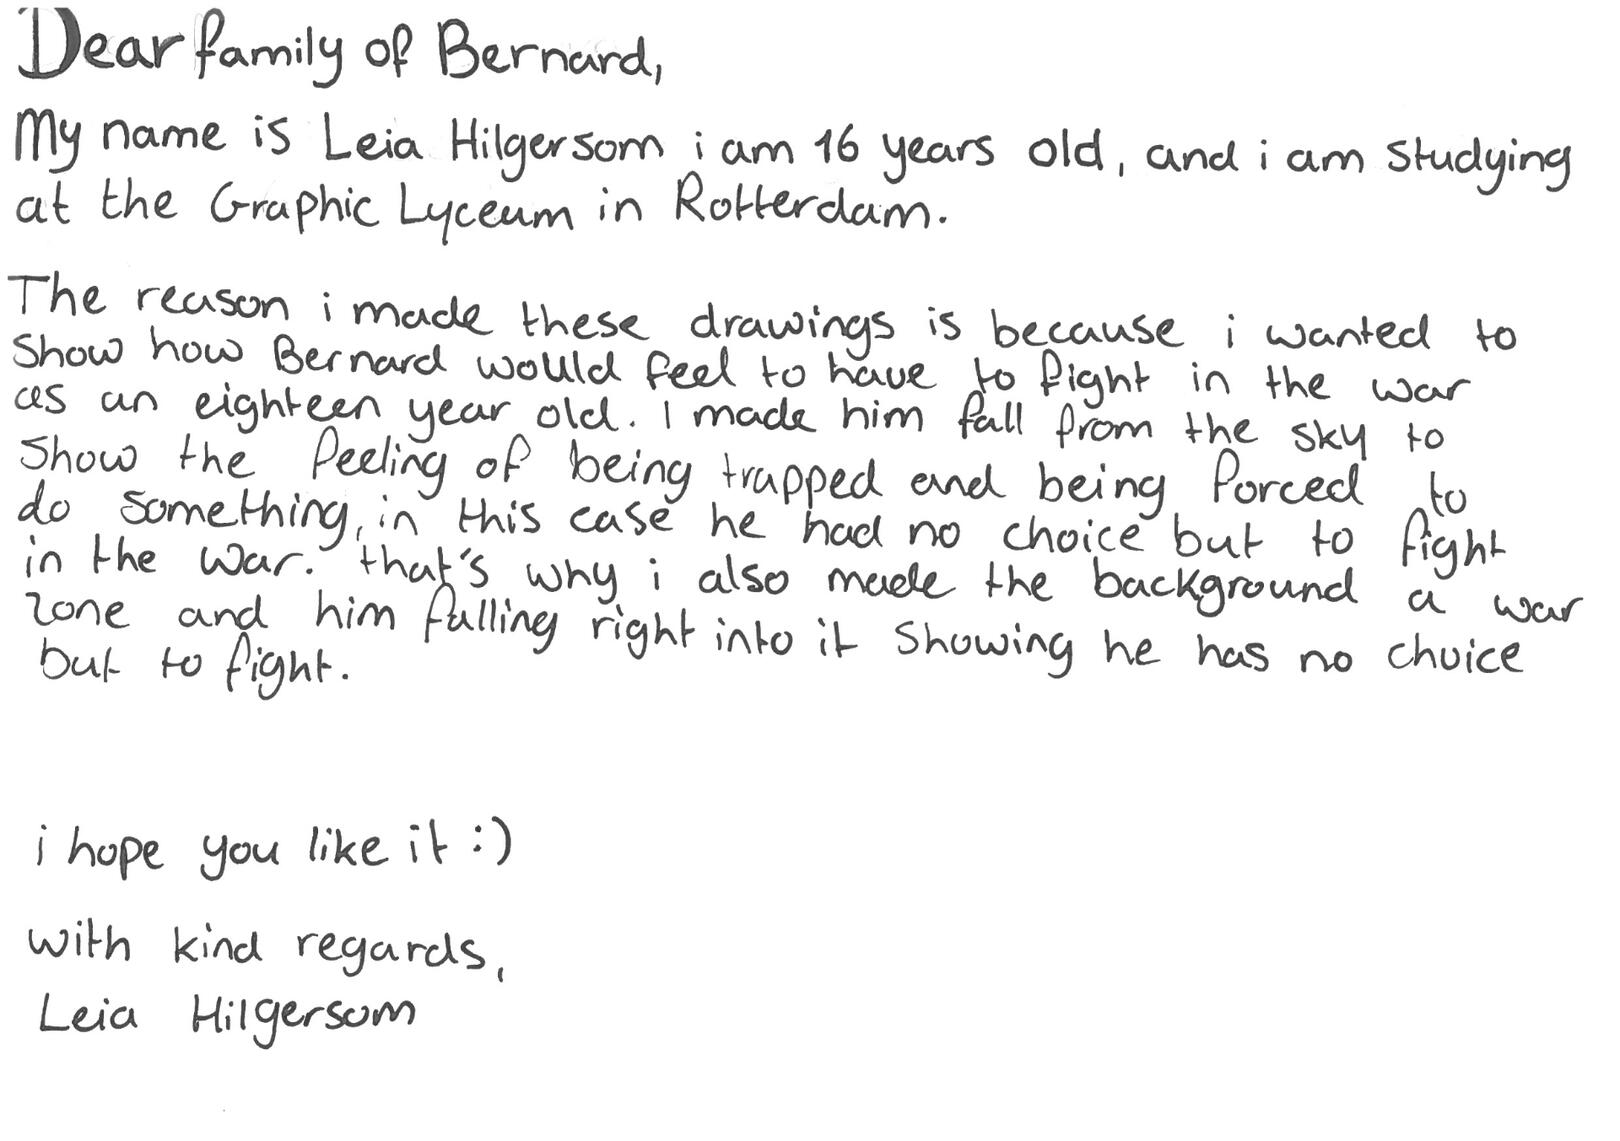 Dear family of Bernard,
My name is Leia Hilgersom i am 16 years old, and i am studying
at the Graphic Lyceum in Rotterdam.
The reason i made these drawings is because i wanted to
show how Bernard would feel to have to fight in the war
as an eighteen year old. I made him fall from the sky to
show the feeling of being trapped and being forced to
do something, in this case he had no choice but to fight
in the war. that's why i also made the background a war
zone and him falling right into it showing he has no choice
but to fight.
i hope you like it :)
with kind regards,
Leia Hilgersom